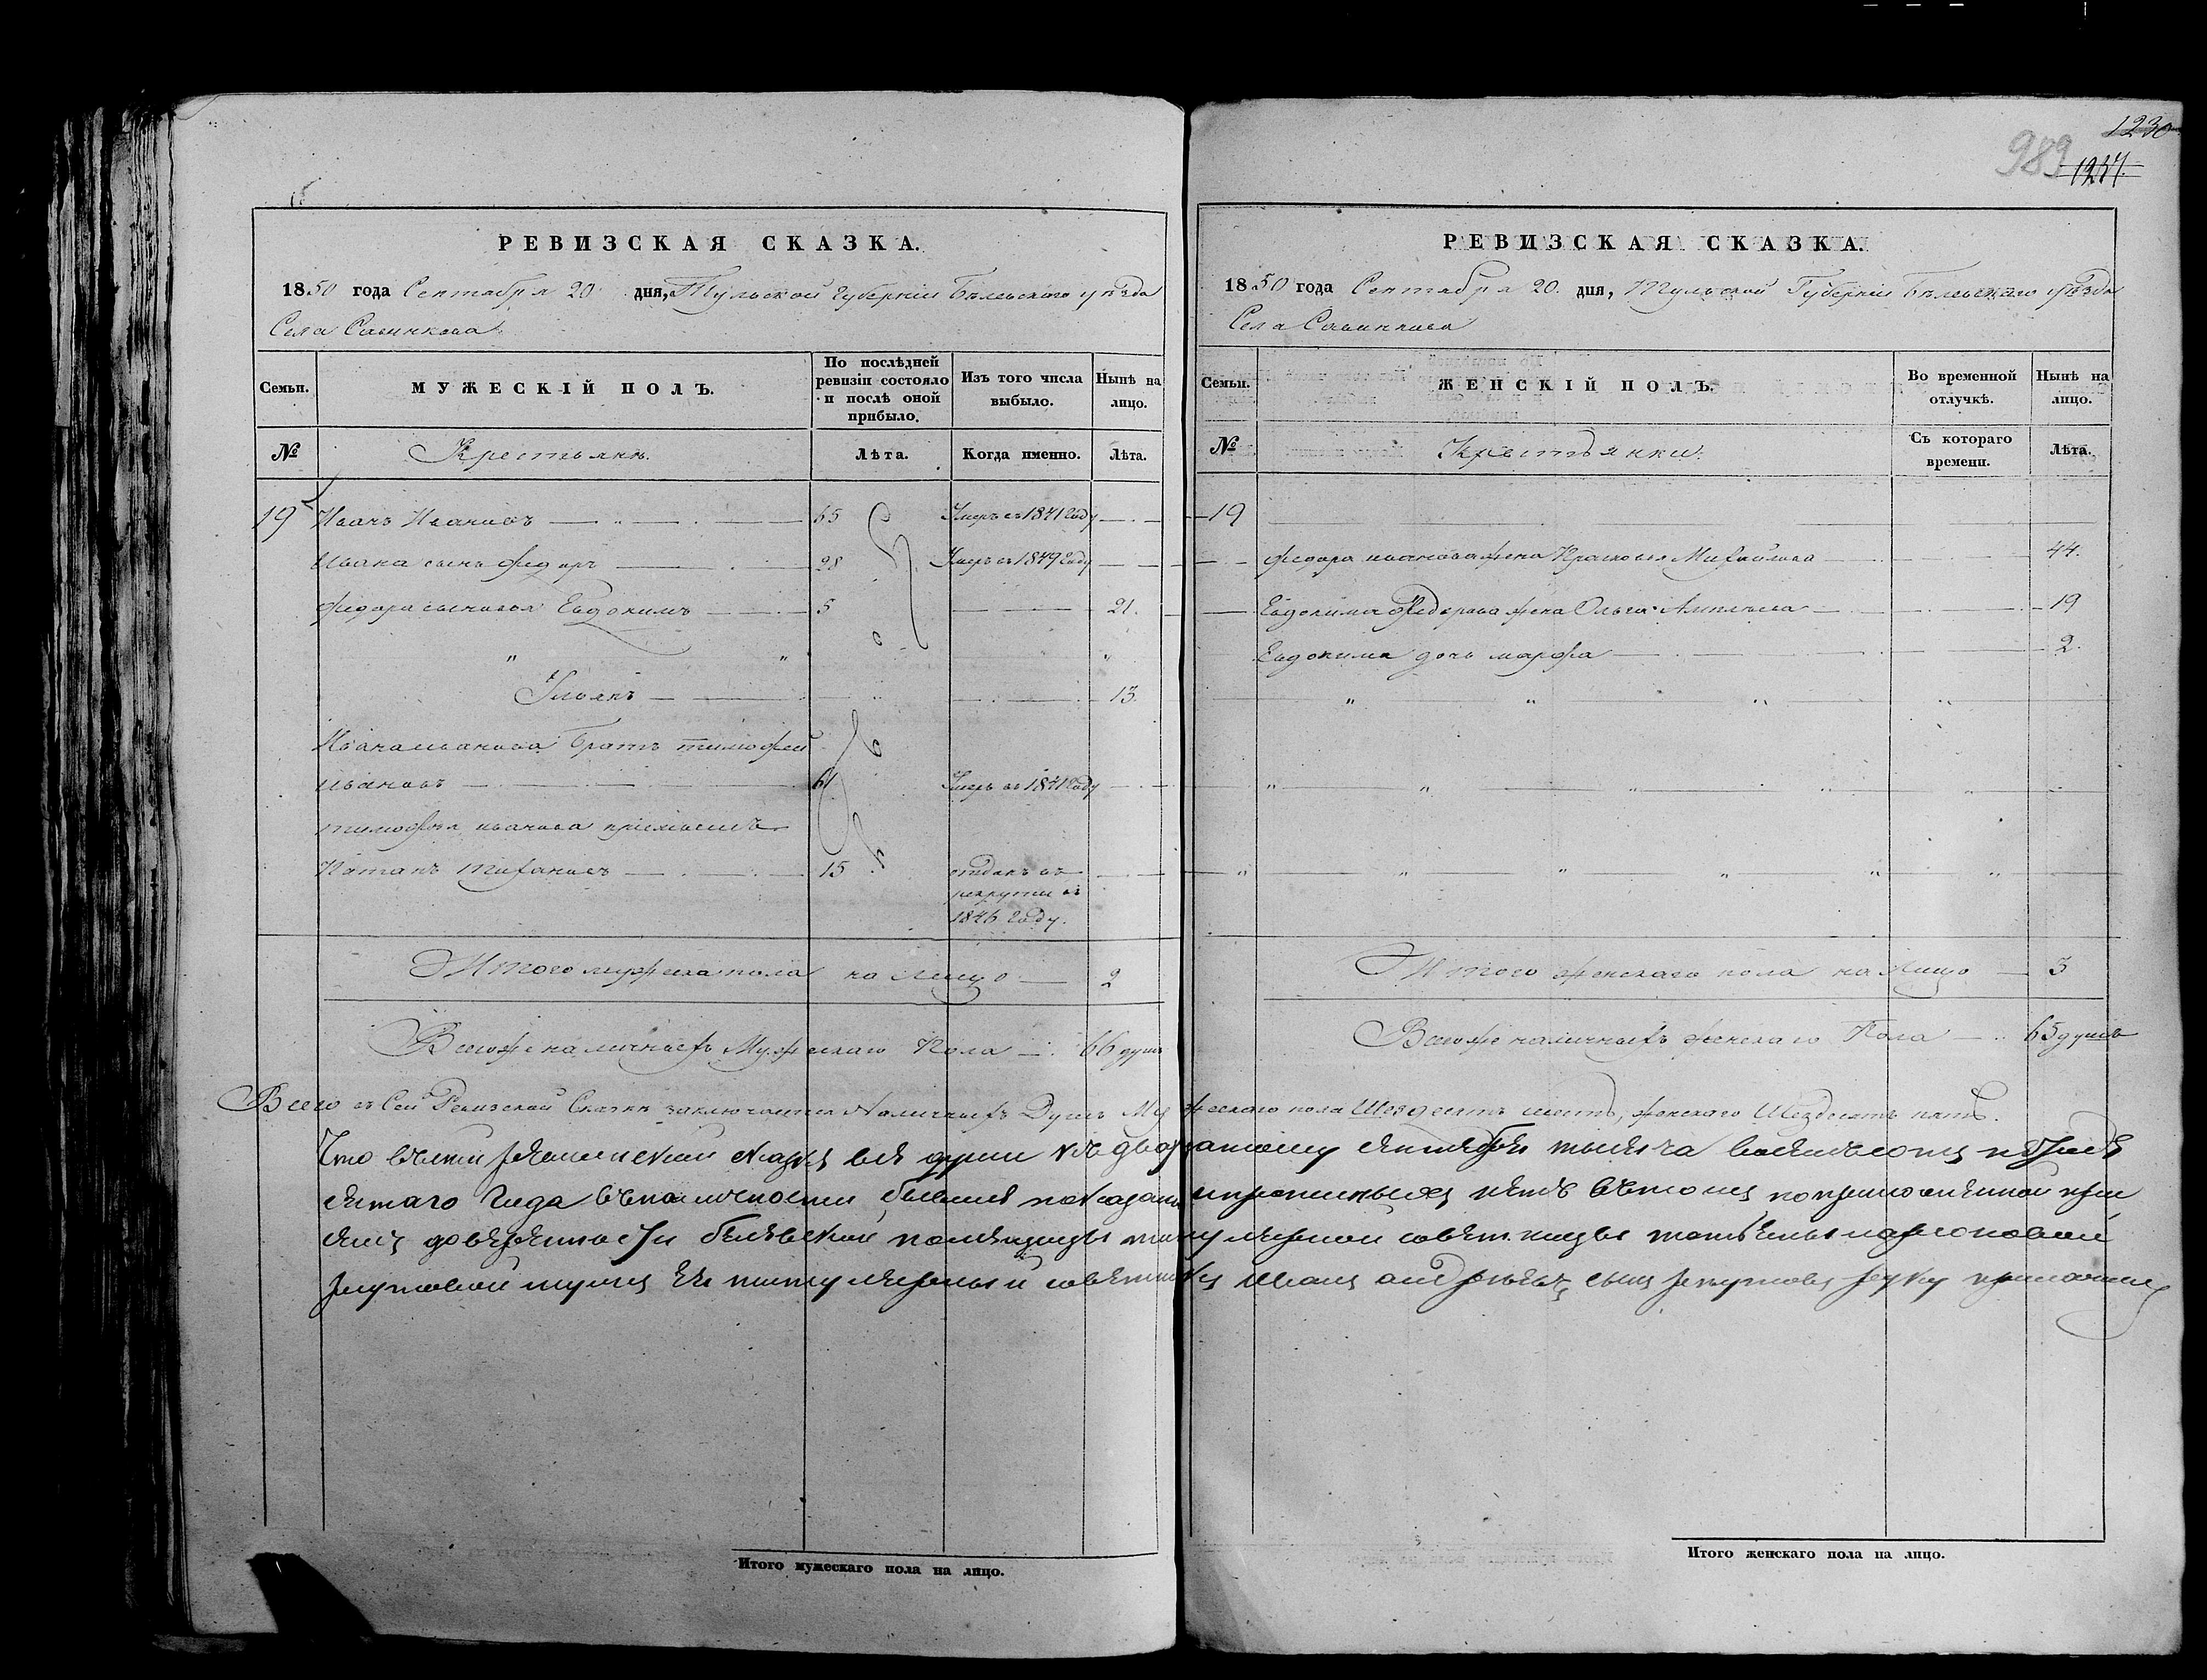 1230
989 1237
РЕВИЗСКАЯ СКАЗКА.
1850 года Сентября 20 дня, Тульской Губерніи Бѣлевскаго уѣзда
Села Савинкова
Семьи. МУЖЕСКІЙ ПОЛЪ. По послѣдней ревизіи состояло и послѣ оной прибыло. Изъ того числа выбыло. Нынѣ на лицо.
№ Крестьяне. Лѣта. Когда именно. Лѣта.
19 Иванъ Ивановъ 65 Умеръ въ 1841 году
Ивана сынъ Федоръ 28 Умеръ въ 1849 году
Федора сыновья Евдокимъ 5 21.
" " "
Ульянъ 13.
Ивана Иванова братъ Тимофей
Ивановъ 61 Умеръ въ 1841 году
Тимофея Иванова пріемышъ
Потапъ 15 отданъ въ
рекруты въ
1846 году.
Итого мужеска пола на лицо 2
Всего же наличныхъ Мужескаго Пола 66 душъ
РЕВИЗСКАЯ СКАЗКА.
1850 года Сентября 20. дня, Тульской Губерніи Бѣлевскаго уѣзда
Села Савинкова
Семьи. ЖЕНСКІЙ ПОЛЪ. Во временной отлучкѣ. Нынѣ на лицо.
№ Крестьянки. Съ котораго времени. Лѣта.
19
Федора Иванова жена Прасковья Михайлова 44.
Евдокима Федорова жена Ольга 19
Евдокима дочь Марфа 2.
Итого женскаго пола на лицо 3
Всего же наличныхъ женскаго Пола 65 душъ
Всего въ Сей Ревизской Сказкѣ заключается Наличныхъ Душъ Мужескаго пола Шездесятъ шесть, женскаго Шездесятъ пять.
Что въ сей скаски все души къ двацатому сентября тысеча восемьсотъ
сятаго года въ наличности бывшия показаны и прописныхъ нетъ въ томъ по приложенной при
семъ доверенности белевской помещицы титулярной советницы
титулярный советникъ Иванъ Андреевъ сынъ руку приложилъ
Итого мужескаго пола на лицо.
Итого женскаго пола на лицо.